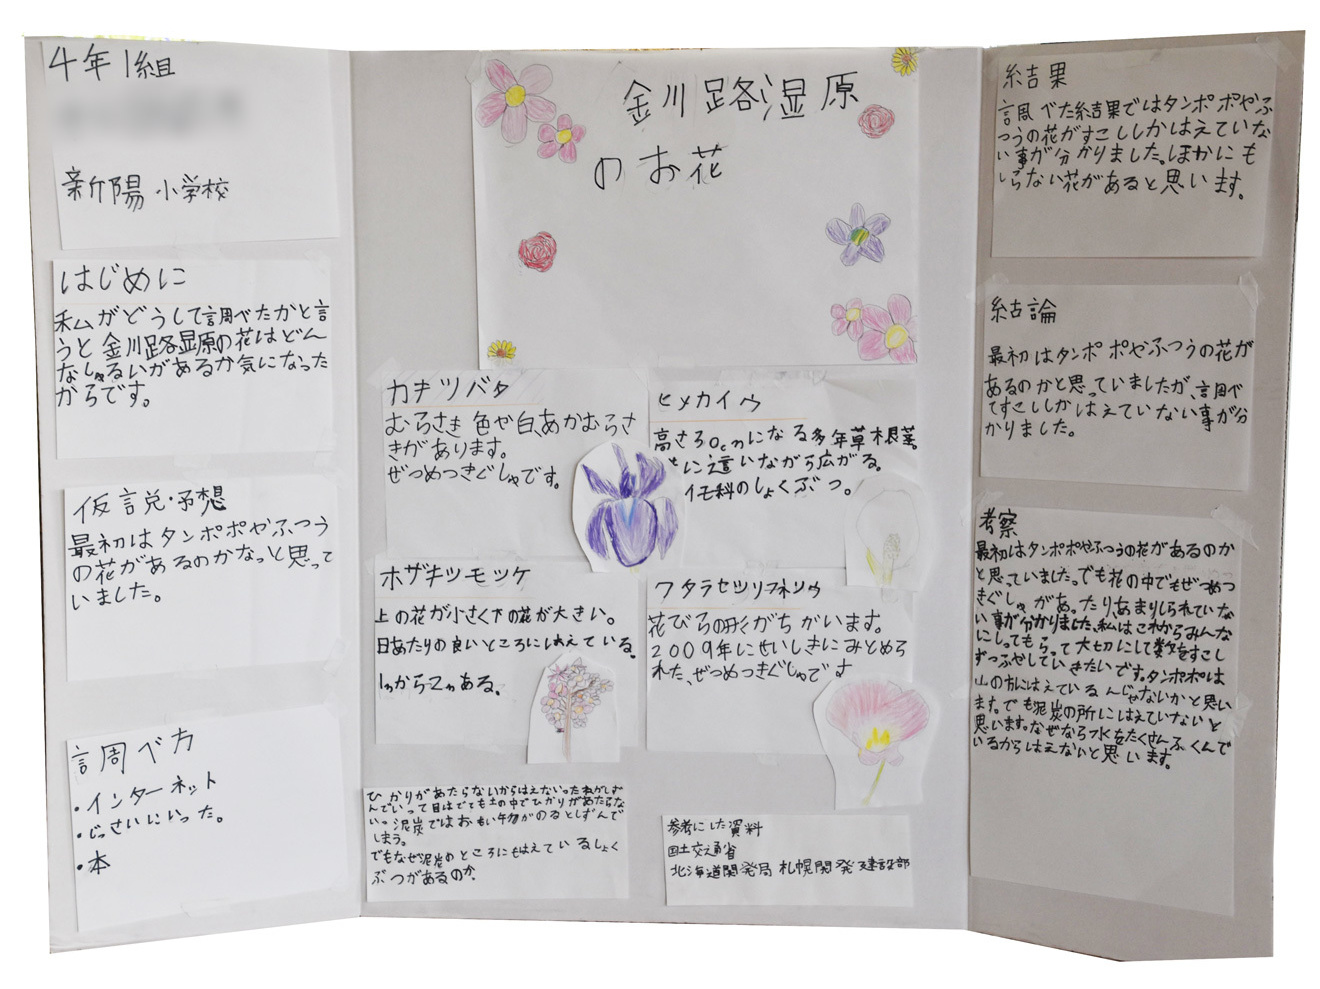 4年1組
新陽小学校
はじめに
私がどうして調べたかと言
うと釧路湿原の花はどん
なしゅるいがあるか気になった
からです。
仮説・予想
最初はタンポポやふつう
の花があるのかなっと思って
いました。
調べ方
・インターネット
・じっさいにいった。
・本
釧路湿原
のお花
カキツバタ
むらさき色や白、あかむらさ
きがあります。
ぜつめつきぐしゅです。
ヒメカイウ
高さ30cmになる多年草根茎。
に這いながら広がる。
イモ科のしょくぶつ。
ホザキシモツケ
上の花が小さく下の花が大きい。
日あたりの良いところにはえている。
1mから2mある。
ワタラセツリフネソウ
花びらの形がちがいます。
2009年にせいしきにみとめら
れた、ぜつめつきぐしゅです
ひかりがあたらないからはえないったねがしず
んでいって目はでても土の中でひかりがあたらな
いっ泥炭ではおもい物がのるとしずんで
しまう。
でもなぜ泥炭のところにもはえているしょく
ぶつがあるのか。
参考にした資料
国土交通省
北海道開発局 札幌開発建設部
結果
調べた結果ではタンポポやふ
つうの花がすこししかはえていな
い事が分かりました。ほかにも
しらない花があると思います。
結論
最初はタンポポやふつうの花が
あるのかと思っていましたが、調べ
てすこししかはえていない事が分
かりました。
考察
最初はタンポポやふつうの花があるのか
と思っていました。でも花の中でもぜつめつ
きぐしゅがあったり、あまりしられていな
い事が分かりました、私はこれからみんな
にしってもらって大切にして数をすこし
ずつふやしていきたいです。タンポポは
山の方にはえているんじゃないかと思い
ます。でも泥炭の所にはえていないと
思います。なぜなら水をたくさんふくんで
いるからはえないと思います。